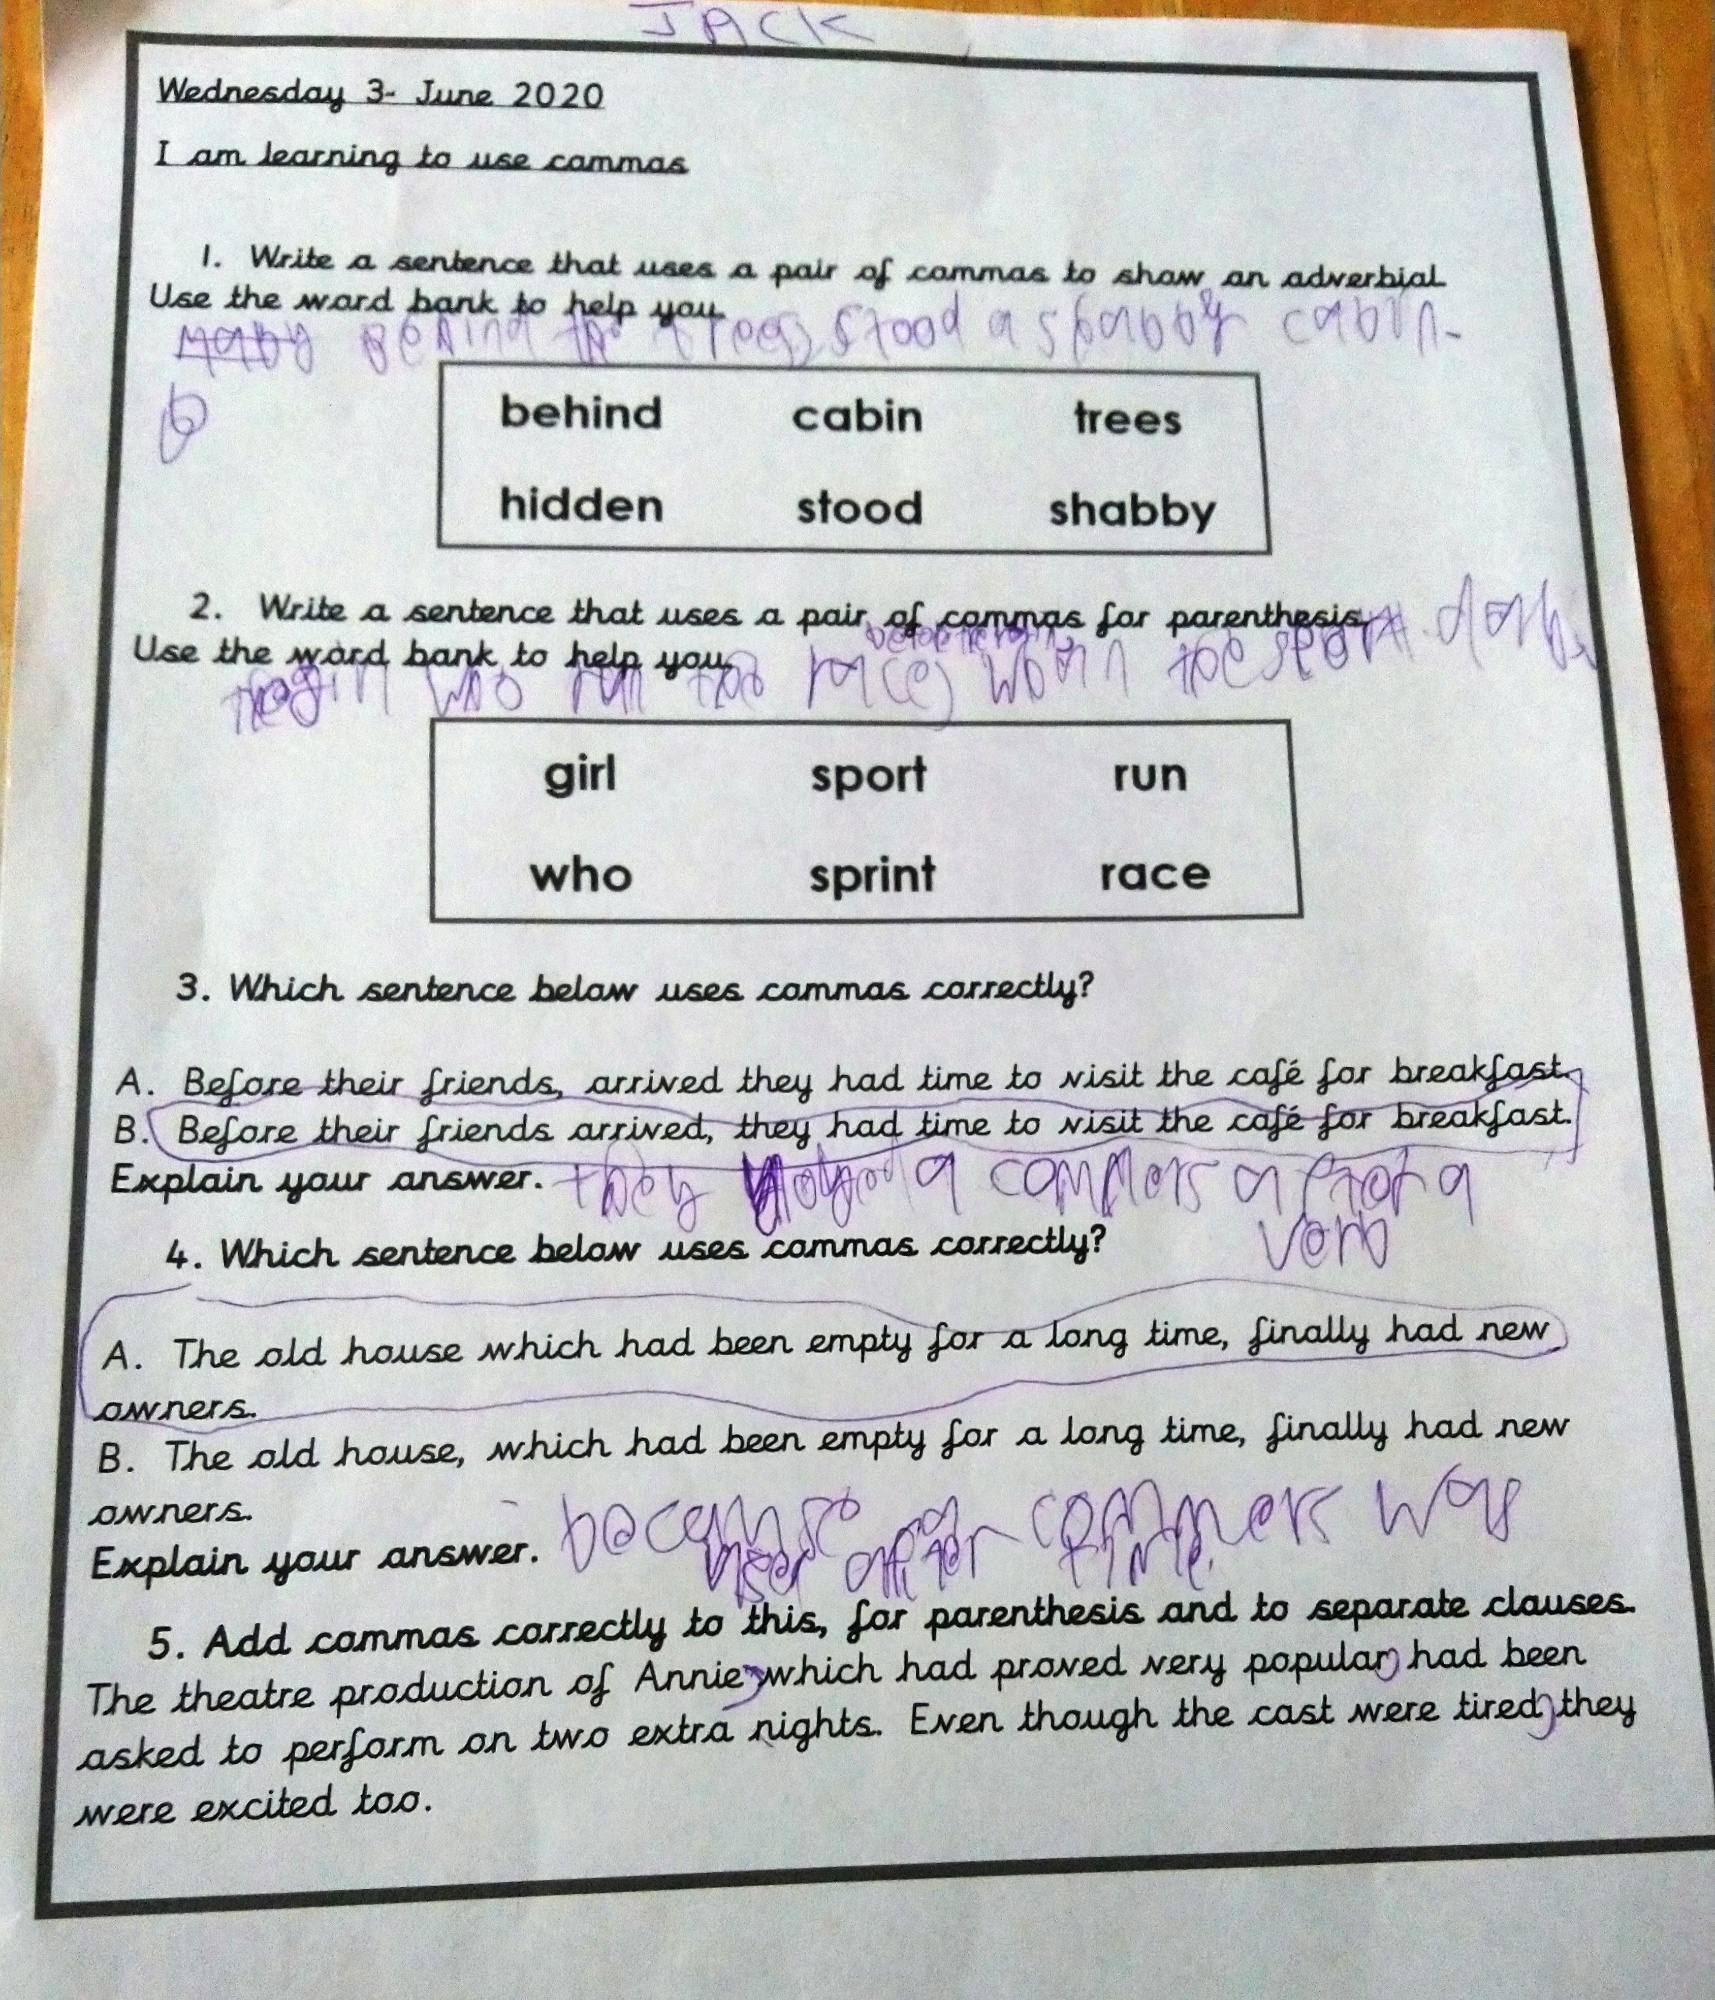 JACK
Wednesday 3- June 2020
I am learning to use commas
1. Write a sentence that uses a pair of commas to show an adverbial.
Use the word bank to help you.
Behind the trees, stood a shabby cabin.
behind cabin trees
hidden stood shabby
2. Write a sentence that uses a pair of commas for parenthesis.
Use the word bank to help you.
who run the race,
girl sport run
who sprint race
3. Which sentence below uses commas correctly?
A. Before their friends, arrived they had time to visit the café for breakfast.
B. Before their friends arrived, they had time to visit the café for breakfast.
Explain your answer. they a a
verb
4. Which sentence below uses commas correctly?
A. The old house which had been empty for a long time, finally had new
owners.
B. The old house, which had been empty for a long time, finally had new
owners.
Explain your answer. was
after time.
5. Add commas correctly to this, for parenthesis and to separate clauses.
The theatre production of Annie, which had proved very popular, had been
asked to perform on two extra nights. Even though the cast were tired, they
were excited too.